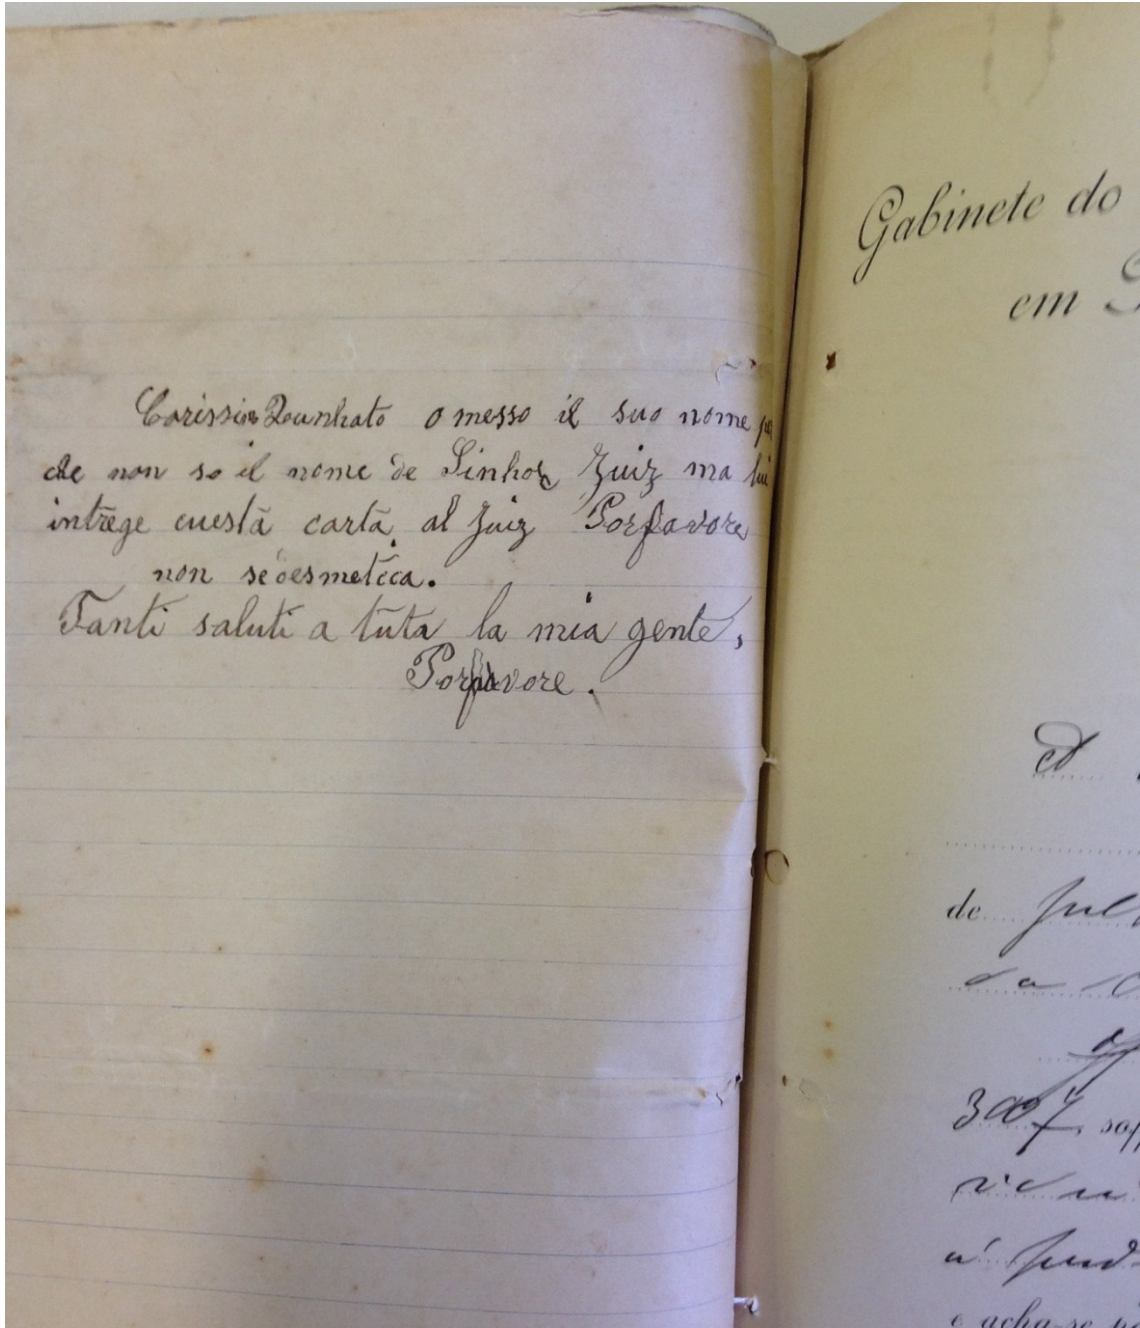 Carissio Zunhato o messo il suo nome pe
che non so il nome de Sinhor Juiz ma lui
intrege cuesta carta al Juiz Porfavore
non se desmetica.
Tanti saluti a tuta la mia gente,
Porfavore.
Gabinete do
em
de
3007